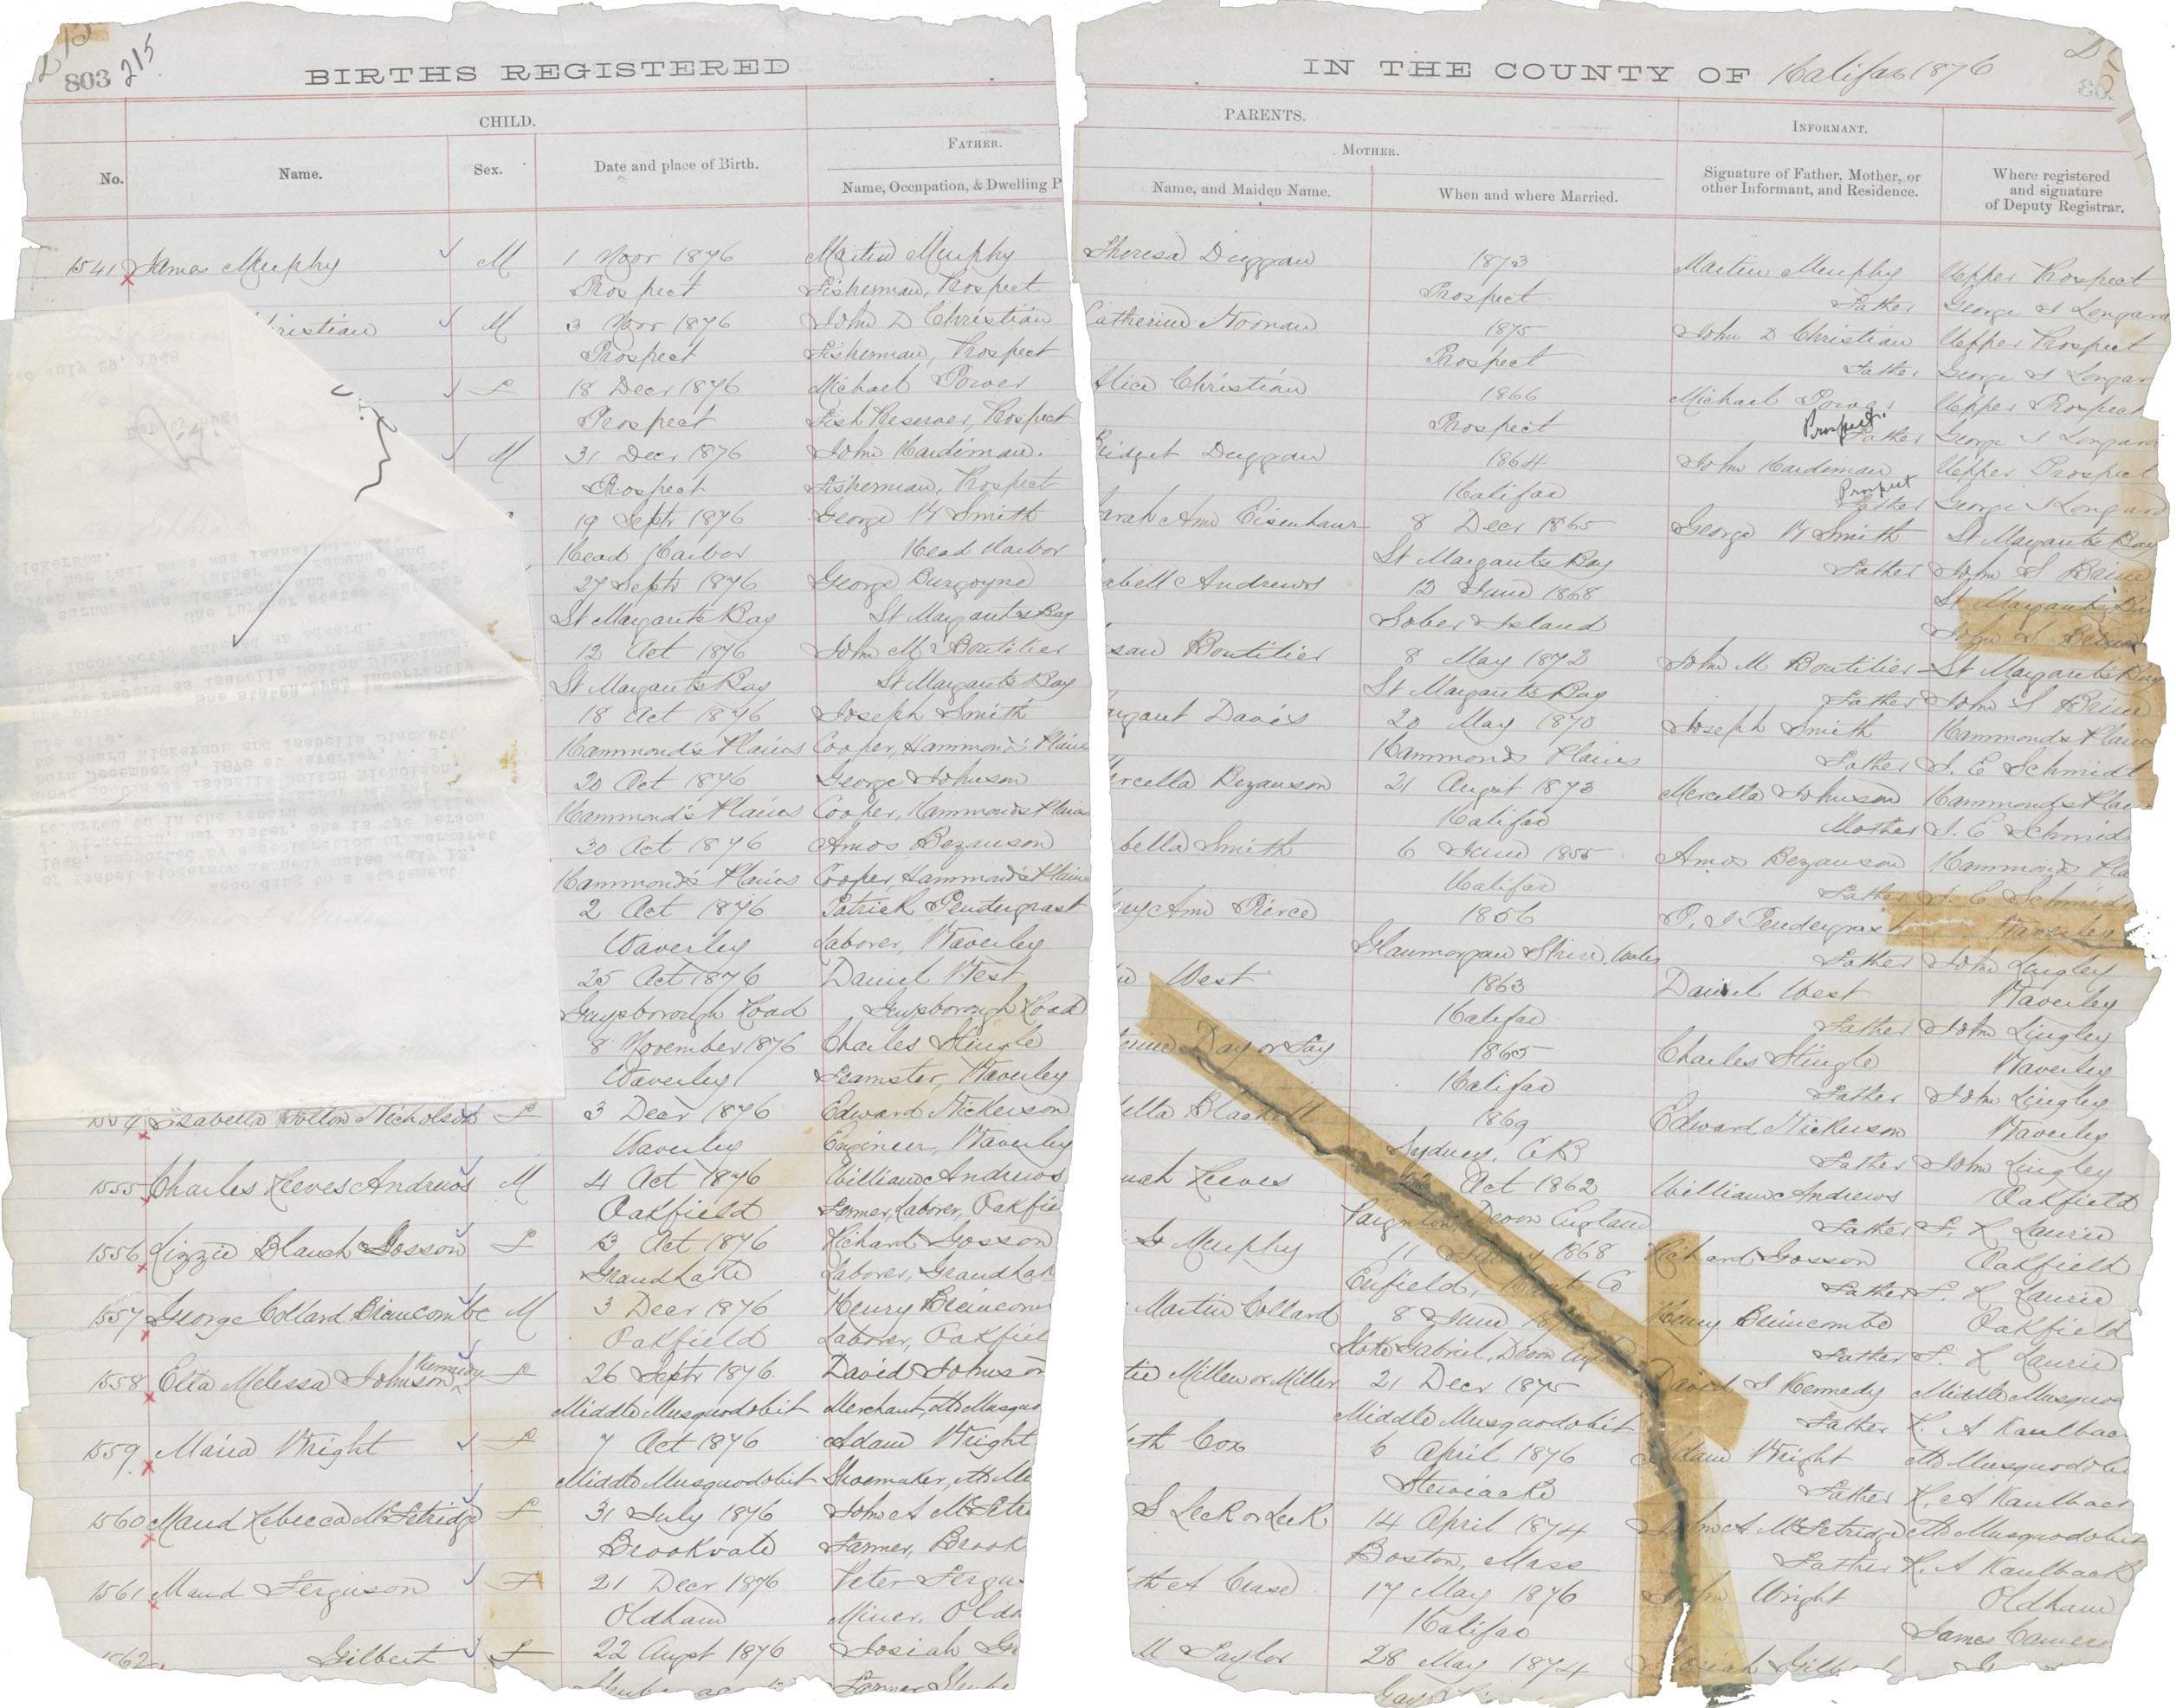 803 215
BIRTHS REGISTERED IN THE COUNTY OF Halifax 1876
CHILD. PARENTS. INFORMANT.
FATHER. MOTHER.
No. Name. Sex. Date and place of Birth. Name, Occupation, & Dwelling P Name, and Maiden Name. When and where Married. Signature of Father, Mother, or other Informant, and Residence. Where registered and signature of Deputy Registrar.
1541 James Murphy M 1 Novr 1876 Martin Murphy Theresa Duggan 1873 Martin Murphy Upper Prospect
Prospect Fisherman, Prospect Prospect Father George
hristian M 3 Novr 1876 John D Christian Catherine Noonan 1875 John D Christian Upper Prospect
Prospect Fisherman, Prospect Prospect Father George
F 18 Decr 1876 Michael Power Alice Christian 1866 Michael Power Upper Prospect
Prospect Prospect Prospect Prospect. Father George
M 31 Decr 1876 John Hardiman. Bridget Duggan 1864 John Hardiman Upper Prospect
Prospect Fisherman, Prospect Halifax Prospect Father George
19 Septr 1876 George W Smith Sarah Ann Eisenhaur 8 Decr 1865 George W Smith St Margarets Bay
Head Harbor Head Harbor St Margarets Bay Father John S Brine
27 Septr 1876 George Burgoyne abell Andrews 12 June 1868 St Margarets
St Margarets Bay St Margarets Bay Sober Island John S Brine
12 Oct 1876 John M Boutilier san Boutilier 8 May 1872 John M Boutilier St Margarets Bay
St Margarets Bay St Margarets Bay St Margarets Bay Father John S Brine
18 Oct 1876 Joseph Smith rgaret Davis 20 May 1870 Joseph Smith Hammonds Plains
Hammond's Plains Cooper, Hammond's Plains Hammonds Plains Father J. E Schmidt
20 Oct 1876 George Johnson ercella Bezanson 21 August 1873 Mercella Johnson Hammonds Plai
Hammond's Plains Cooper, Hammonds Plains Halifax Mother J. E Schmid
30 Oct 1876 Amos Bezanson bella Smith 6 June 1855 Amos Bezanson Hammonds Pla
Hammond's Plains Cooper, Hammond's Plains Halifax Father J. E Schmid
2 Oct 1876 Patrick Pendergrast ry Ann Pierce 1856 P. J Pendergrast Waverley
Waverley Laborer, Waverley Wales Father John Lingley
25 Oct 1876 Daniel West West 1863 Daniel West Waverley
Guysborough Road Guysborough Road Halifax Father John Lingley
8 November 1876 Charles Hingle Day or Fay 1865 Charles Hingle Waverley
Waverley Teamster, Waverley Halifax Father John Lingley
1554 Isabella Nicholson F 3 Decr 1876 Edward Nickerson ella Blackett 1869 Edward Nickerson Waverley
Waverley Engineer, Waverley Sydney, C.B Father John Lingley
1555 Charles Reeves Andrews M 4 Oct 1876 William Andrews nah Reeves Oct 1862 William Andrews Oakfield
Oakfield Farmer, Laborer, Oakfie Paignton, Devon England Father F. K Laurie
1556 Lizzie Blanch Gosson F 13 Oct 1876 Richard Gosson G Murphy 11 1868 Richard Gosson Oakfield
Grand Lake Laborer, Grand Lak Enfield, Hants Co Father F. K Laurie
1557 George Collard Brinicombe M 3 Decr 1876 Henry Brinicom Martin Collard 8 June Henry Brinicombe Oakfield
Oakfield Laborer, Oakfiel Stoke Gabriel, Devon Father F. K Laurie
1558 Etta Melissa Johnson Kennedy F 26 Septr 1876 David Johnson Millen or Miller 21 Decr 1875 David J Kennedy Middle Musquo
Middle Musquodobit Merchant, Md Musquo Middle Musquodobit Father R. A Kaulbac
1559 Maria Wright F 7 Oct 1876 Adam Wright eth Cox 6 April 1876 Adam Wright Md Musquodobi
Middle Musquodobit Shoemaker, Md Mu Stewiacke Father R. A Kaulbac
1560 Maud Rebecca McFetridge F 31 July 1876 John A McFetri S Leck or Leek 14 April 1874 John A McFetridge Md Musquodobit
Brookvale Farmer, Brook Boston, Mass Father R. A Kaulback
1561 Maud Ferguson F 21 Decr 1876 Peter Fergus th A Crase 17 May 1876 John Wright Oldham
Oldham Miner, Oldh Halifax James
1562 Gilbert F 22 Augst 1876 Josiah Gi Taylor 28 May 1874 Josiah Gilb
Farmer